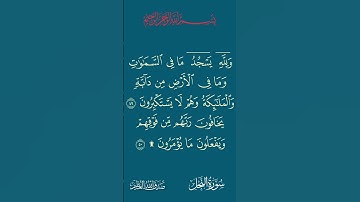 بسم الله الرحمن الرحيم
وَلِلَّهِ يَسْجُدُ مَا فِي السَّمَٰوَٰتِ
وَمَا فِي الْأَرْضِ مِن دَآبَّةٍ
وَالْمَلَٰٓئِكَةُ وَهُمْ لَا يَسْتَكْبِرُونَ ٤٩
يَخَافُونَ رَبَّهُم مِّن فَوْقِهِمْ
وَيَفْعَلُونَ مَا يُؤْمَرُونَ ۩ ٥٠
سُورَةُ النَّحْلِ صدق الله العظيم